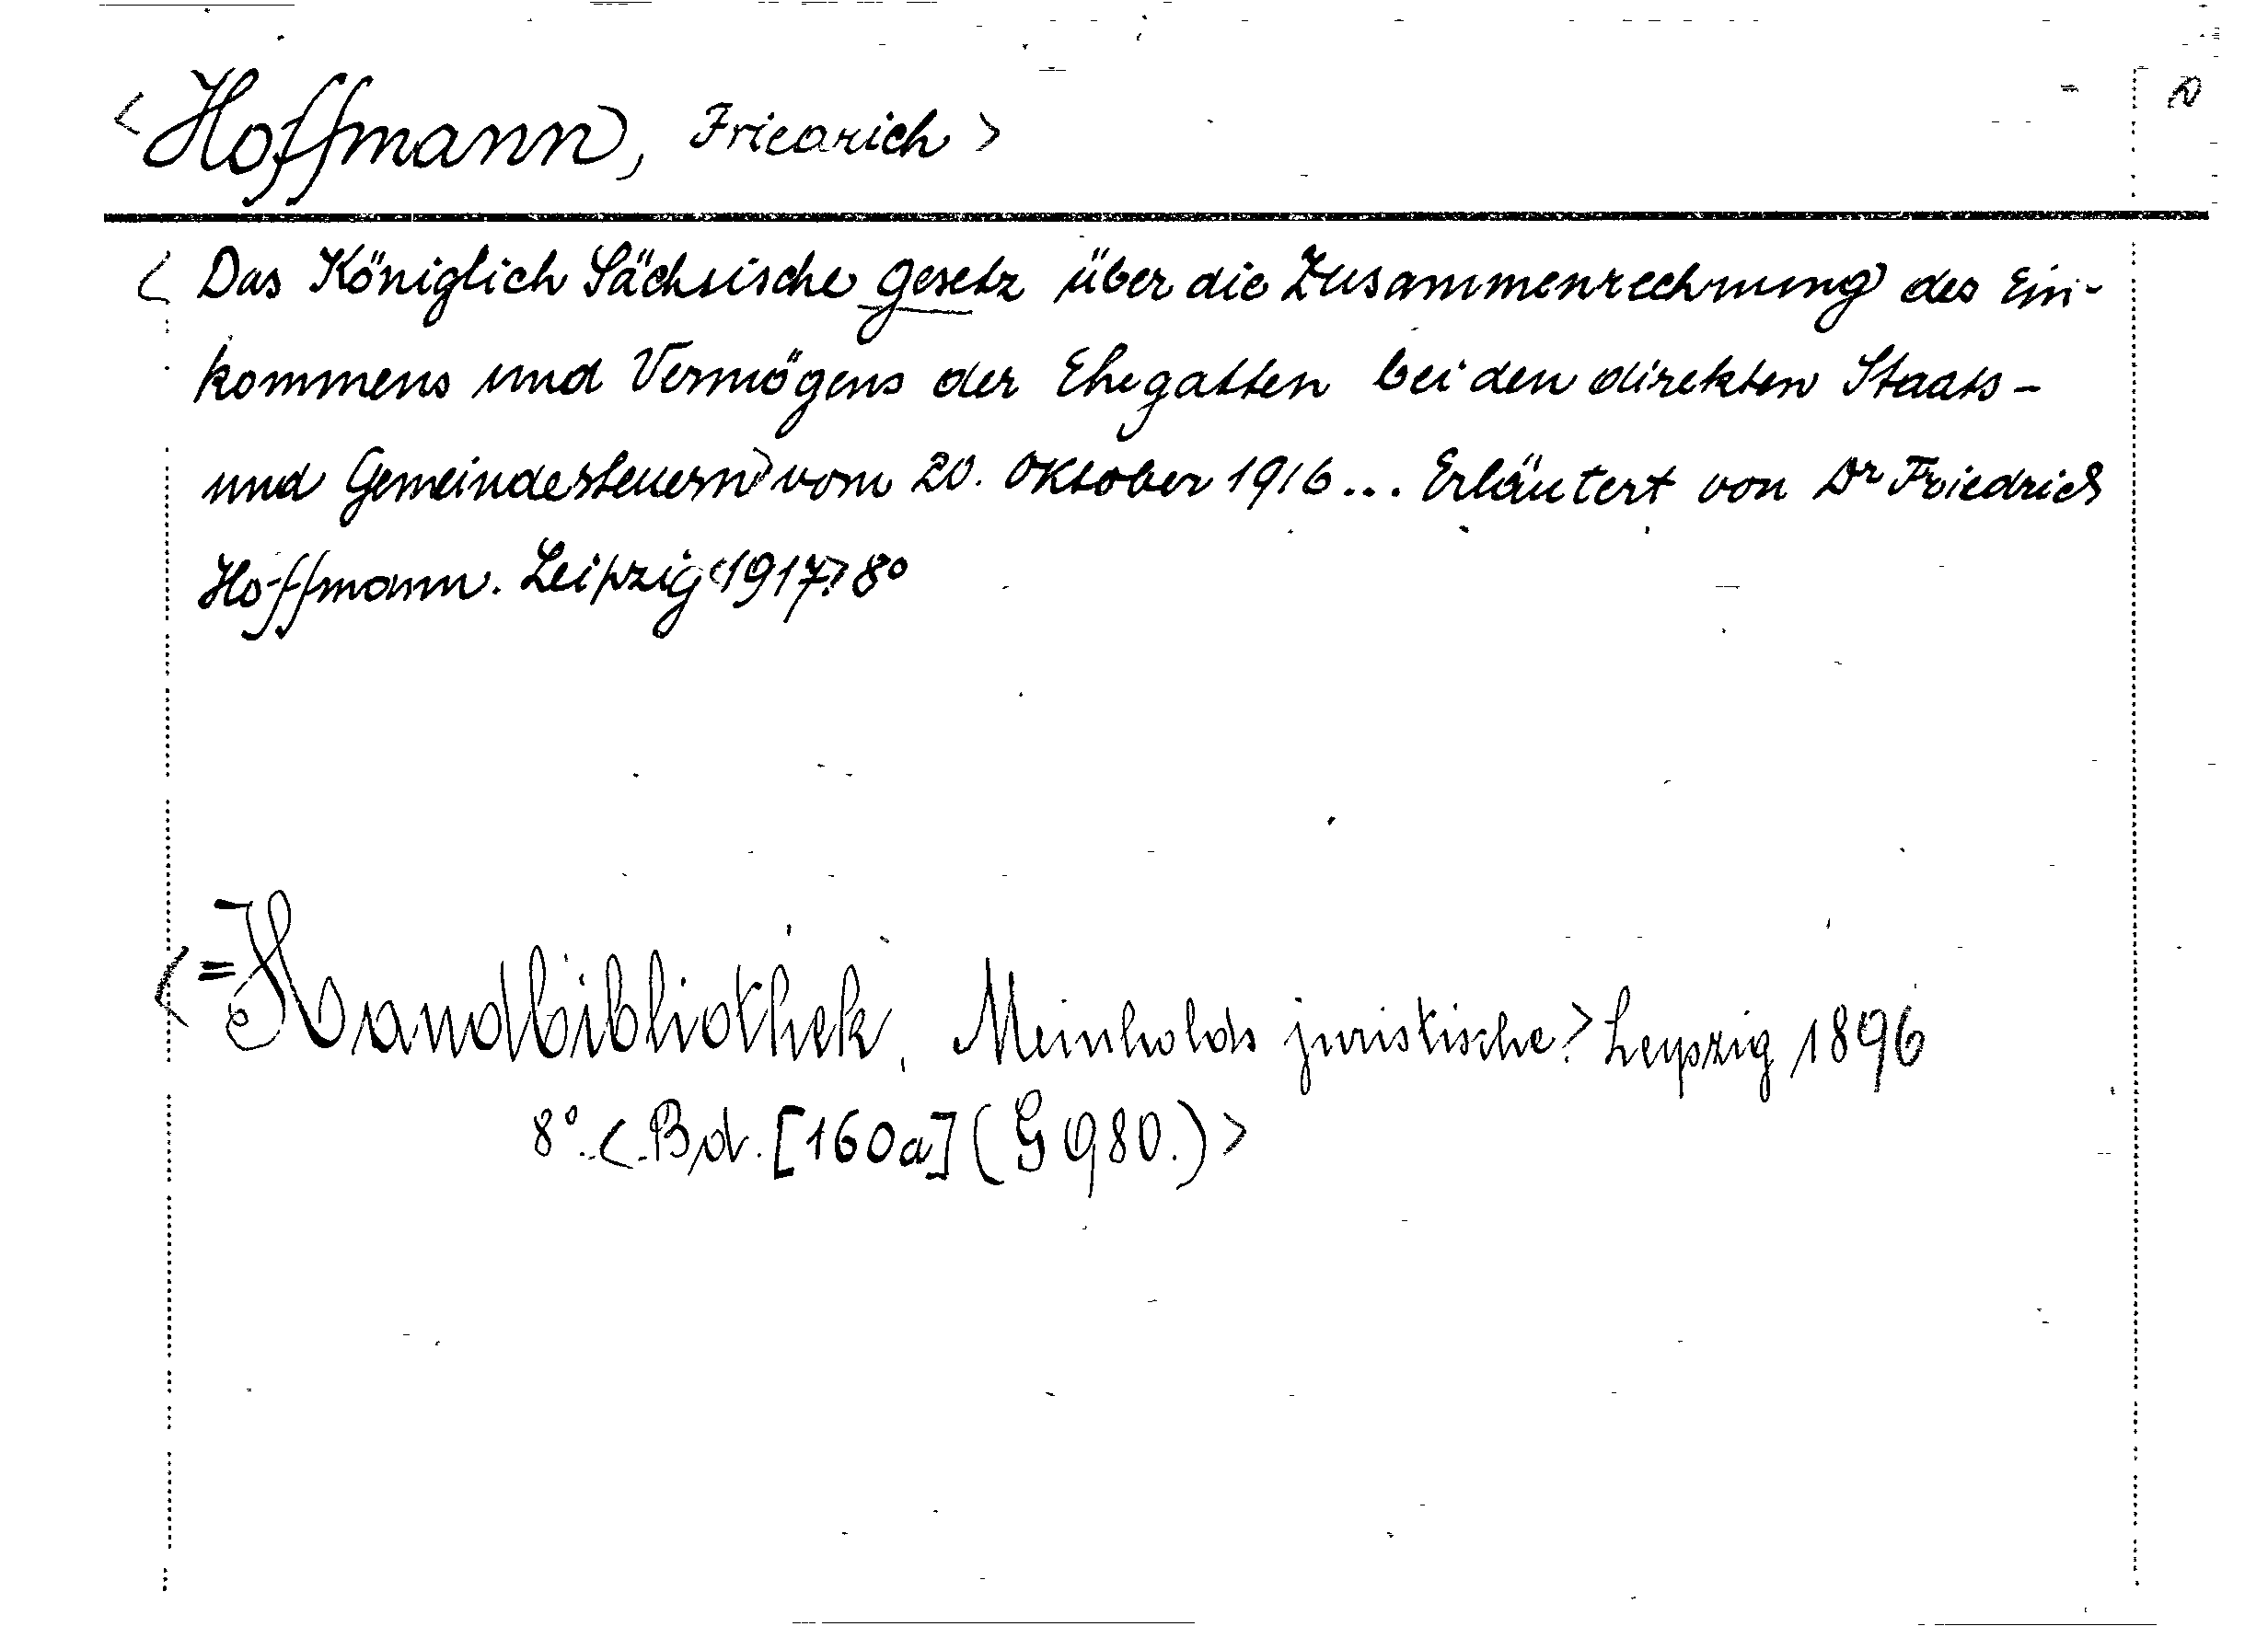 <Hoffmann, Friedrich>
<Das Königlich Sächsische Gesetz über die Zusammenrechnung des Ein-
kommens und Vermögens der Ehegatten bei den direkten Staats-
und Gemeindesteuern> vom 20. Oktober 1916... Erläutert von Dr Friedrich
Hoffmann. Leipzig <1917> 8°
<=Handbibliothek, Meinholds juristische.> Leipzig 1896
8°. <Bd. [160a] (G 980.)>